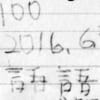 100
2016.6
語語